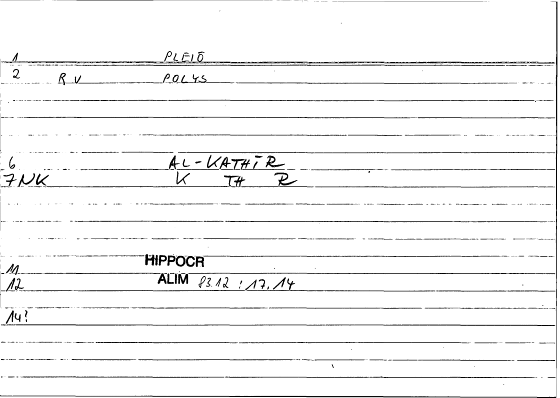 1 PLEIŌ
2 R V POLYS
6 AL-KATHĪR
7 NK K TH R
11 HIPPOCR
12 ALIM 83.12 : 17.14
14?